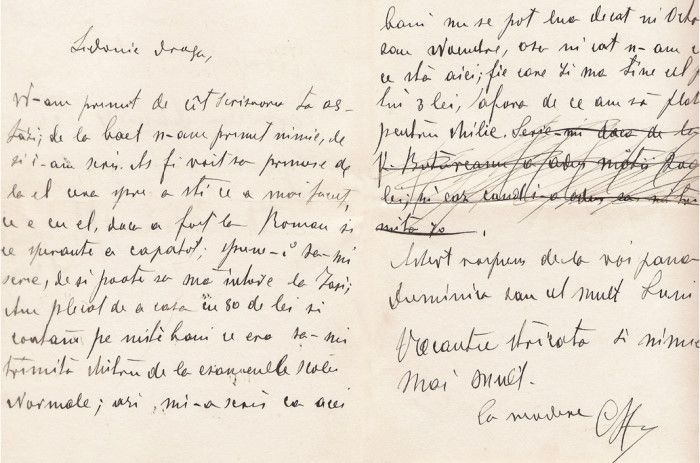 Sidonie draga,
N-am primit de cît scrisoarea ta as-
tazi; de la baet n-am primit nimic, de
si i-am scris. As fi voit sa primesc de
la el ceva spre a sti ce a mai facut,
ce e cu el, daca a fost la Roman si
ce sperante a capatat; spune-i sa-mi
scrie, de si poate sa ma întorc la Iasi;
Am plecat de a casa în 80 de lei si
contam pe niste bani ce era sa-mi
trimită Mitru de la examenele scoalei
Normale; azi, mi-a scris ca acei
bani nu se pot lua decat in Octo
sau Noembre, asa in cat n-am
ce sta aici; fie care zi ma tine cel
lui 3 lei, afara de ce am să plat
pentru chilie. Scrie-mi daca de la
V. Botureanu a adus
lei; in caz cand
Astept raspuns de la voi pana
Duminica sau cel mult Luni
Vacantie stricata si nimic
mai mult.
La vedere